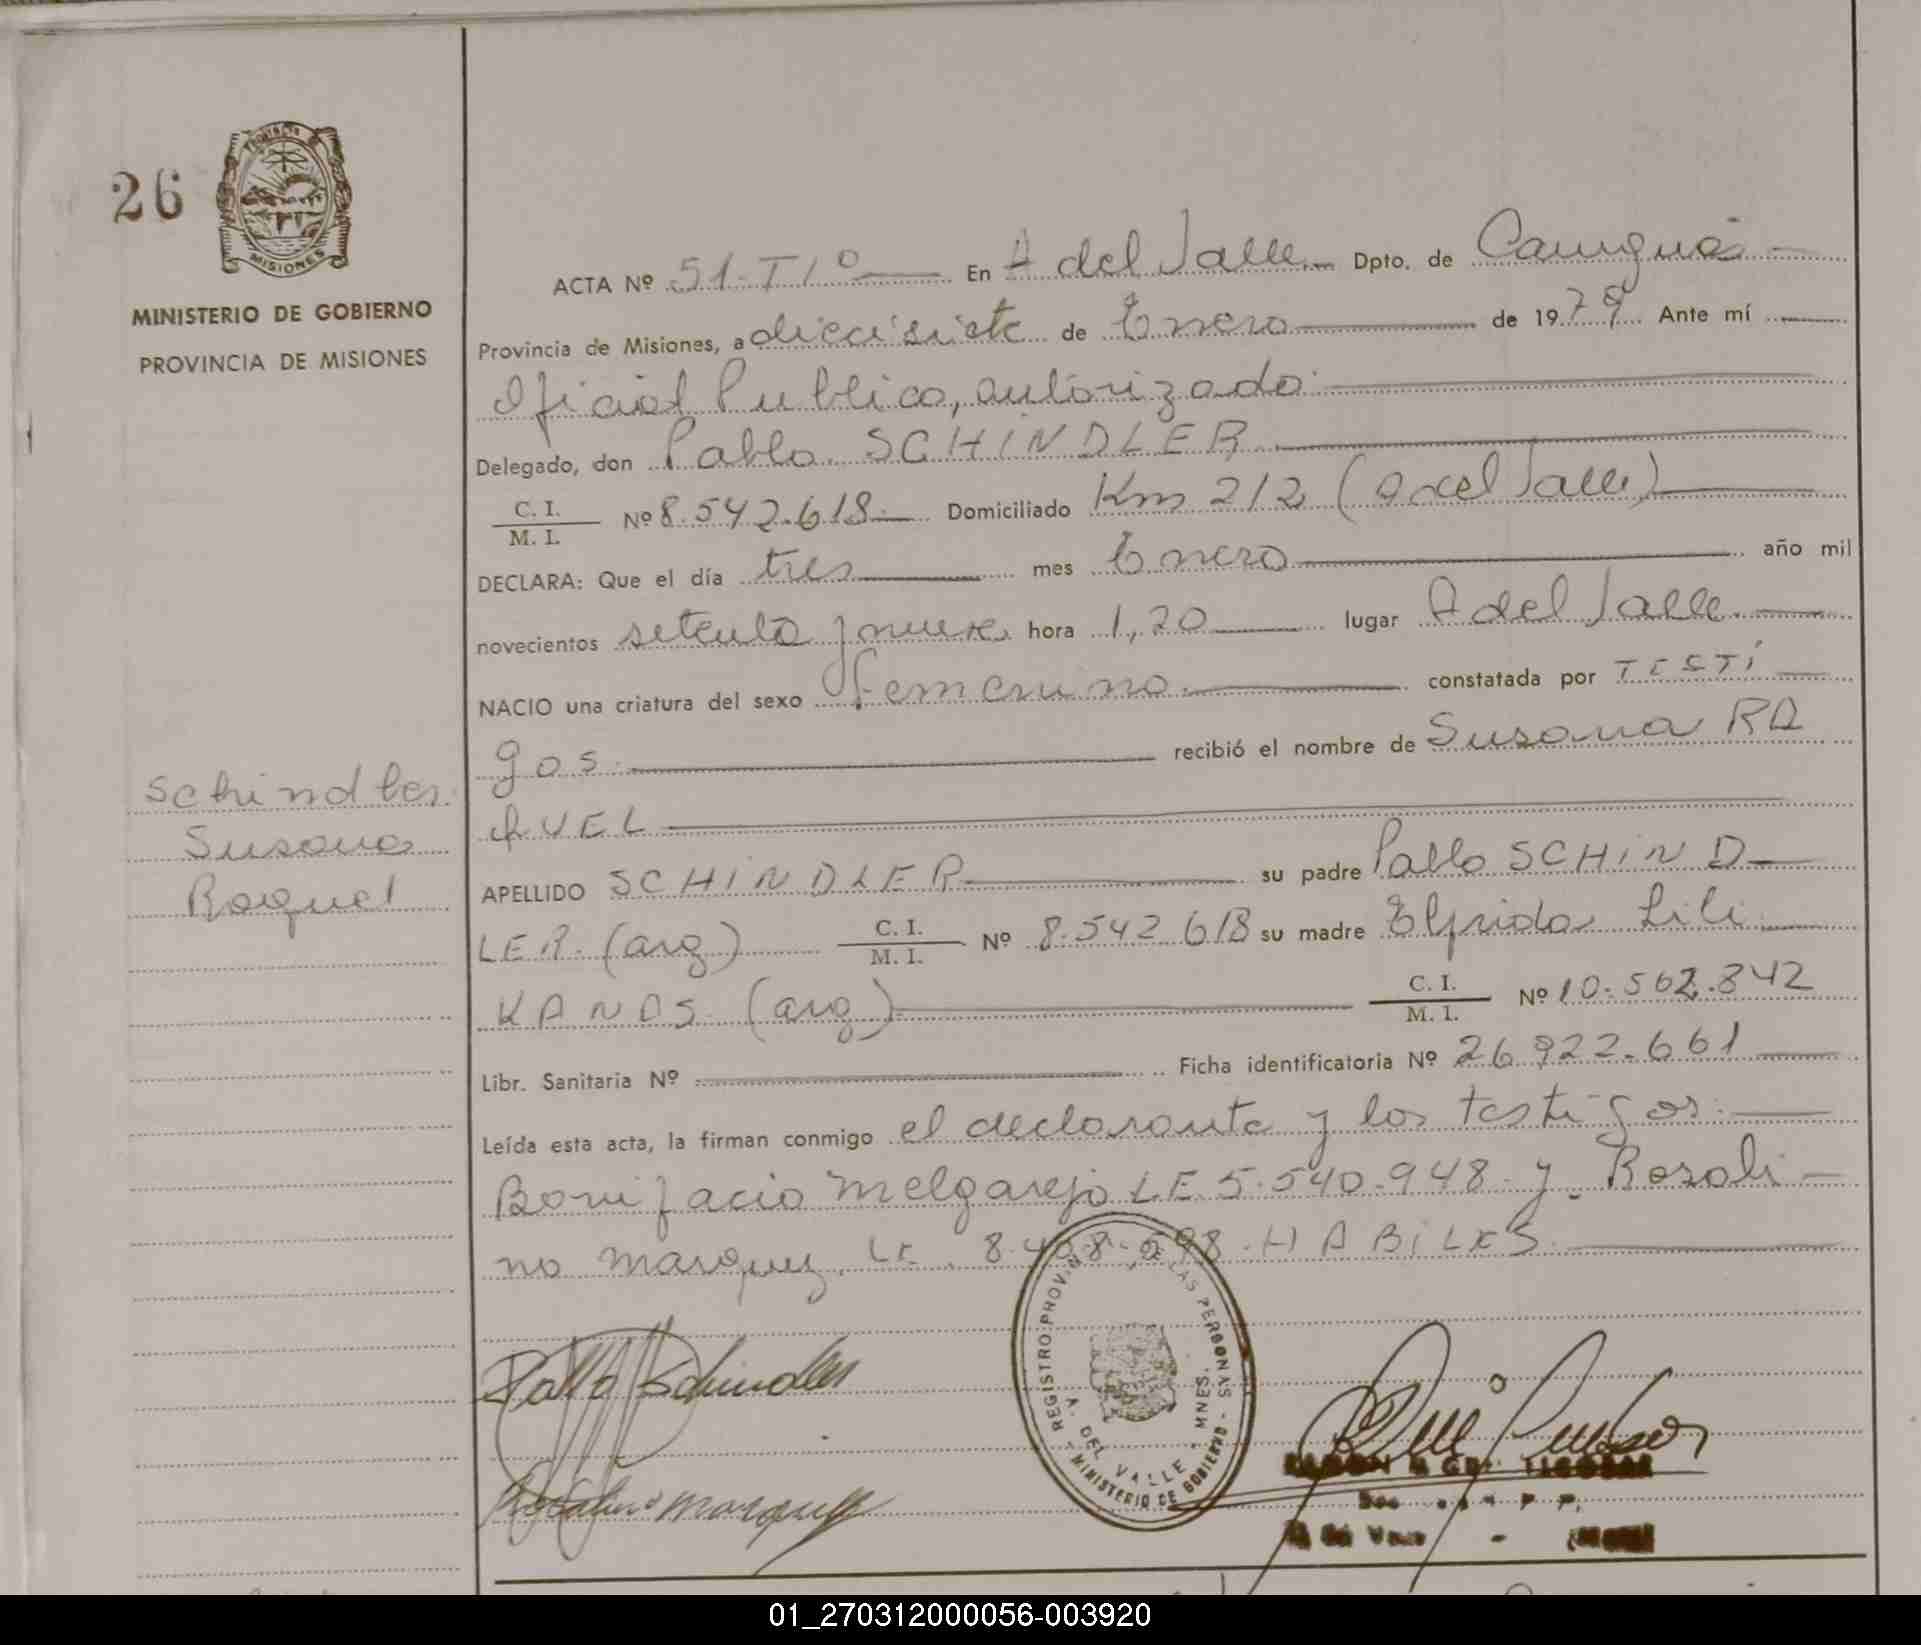 26
Provincia
MISIONES
MINISTERIO DE GOBIERNO
PROVINCIA DE MISIONES
ACTA Nº 51-TIº En A del Valle Dpto. de Cainguás
Provincia de Misiones, a diecisiete de Enero de 1979 Ante mí
Oficial Publico, autorizado
Delegado, don Pablo SCHiNDLER
C. I.
M. I.
Nº 8.542.618 Domiciliado Km 212 (A del Valle)
DECLARA: Que el día tres mes Enero año mil
novecientos setenta y nueve hora 1,20 lugar A del Valle
NACIO una criatura del sexo femenino constatada por TESTi
gos. recibió el nombre de Susana RA
qUEL
Schindler
Susana
Raquel
APELLIDO SCHiNDLER su padre Pablo SCHiND
LER. (arg) C. I.
M. I.
Nº 8.542.618 su madre Elfrida Lili
KANDS (arg) C. I.
M. I.
Nº 10.562.842
Libr. Sanitaria Nº Ficha identificatoria Nº 26.922.661
Leída esta acta, la firman conmigo el declarante y los testigos:
Bonifacio Melgarejo LE 5.540.948 y Rosali
no Marquez. LE. 8.498.598. HABiLES
Pablo Schindler
Rosalino Marquez
REGISTRO PROV. DE LAS PERSONAS
A. DEL VALLE - MNES.
MINISTERIO DE GOBIERNO
01_270312000056-003920